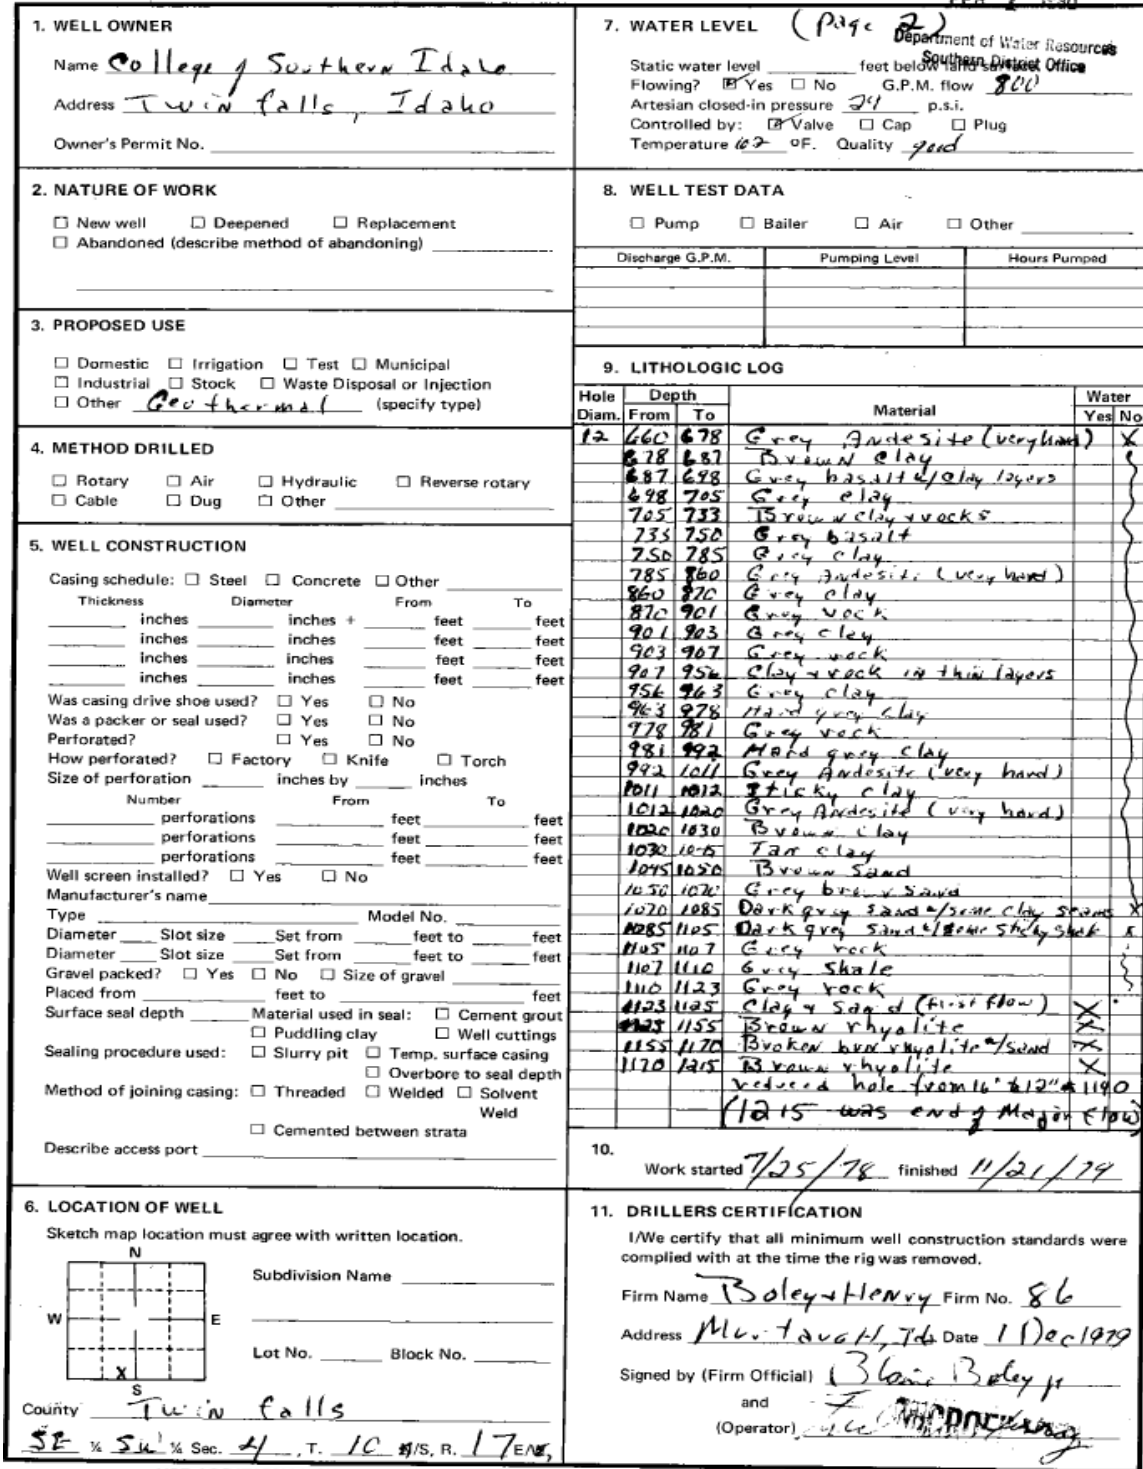 1. WELL OWNER
Name College of Southern Idaho
Address Twin falls, Idaho
Owner's Permit No.
2. NATURE OF WORK
☐ New well ☐ Deepened ☐ Replacement
☐ Abandoned (describe method of abandoning)
3. PROPOSED USE
☐ Domestic ☐ Irrigation ☐ Test ☐ Municipal
☐ Industrial ☐ Stock ☐ Waste Disposal or Injection
☐ Other Geothermal (specify type)
4. METHOD DRILLED
☐ Rotary ☐ Air ☐ Hydraulic ☐ Reverse rotary
☐ Cable ☐ Dug ☐ Other
5. WELL CONSTRUCTION
Casing schedule: ☐ Steel ☐ Concrete ☐ Other
Thickness Diameter From To
inches inches + feet feet
inches inches feet feet
inches inches feet feet
inches inches feet feet
Was casing drive shoe used? ☐ Yes ☐ No
Was a packer or seal used? ☐ Yes ☐ No
Perforated? ☐ Yes ☐ No
How perforated? ☐ Factory ☐ Knife ☐ Torch
Size of perforation inches by inches
Number From To
perforations feet feet
perforations feet feet
perforations feet feet
Well screen installed? ☐ Yes ☐ No
Manufacturer's name
Type Model No.
Diameter Slot size Set from feet to feet
Diameter Slot size Set from feet to feet
Gravel packed? ☐ Yes ☐ No ☐ Size of gravel
Placed from feet to feet
Surface seal depth Material used in seal: ☐ Cement grout
☐ Puddling clay ☐ Well cuttings
Sealing procedure used: ☐ Slurry pit ☐ Temp. surface casing
☐ Overbore to seal depth
Method of joining casing: ☐ Threaded ☐ Welded ☐ Solvent
Weld
☐ Cemented between strata
Describe access port
6. LOCATION OF WELL
Sketch map location must agree with written location.
N
Subdivision Name
W E
Lot No. Block No.
X
S
County Twin falls
SE ¼ SW ¼ Sec. 4, T. 10 N/S, R. 17 E/W,
7. WATER LEVEL (page 2)
Department of Water Resources
Southern District Office
Static water level feet below land surface
Flowing? ☑ Yes ☐ No G.P.M. flow 800
Artesian closed-in pressure p.s.i.
Controlled by: ☑ Valve ☐ Cap ☐ Plug
Temperature 102 °F. Quality good
8. WELL TEST DATA
☐ Pump ☐ Bailer ☐ Air ☐ Other
Discharge G.P.M. Pumping Level Hours Pumped
9. LITHOLOGIC LOG
Hole Depth Water
Diam. From To Material Yes No
12 660 678 Grey Andesite (very hard) X
678 687 Brown clay
687 698 Grey basalt w/clay layers
698 705 Grey clay
705 733 Brown clay + rocks
733 750 Grey basalt
750 785 Grey clay
785 860 Grey Andesite (very hard)
860 870 Grey clay
870 901 Grey rock
901 903 Grey clay
903 907 Grey rock
907 956 Clay + rock in thin layers
956 963 Grey clay
963 978 Hard grey clay
978 981 Grey rock
981 992 Hard grey clay
992 1011 Grey Andesite (very hard)
1011 1012 Sticky clay
1012 1020 Grey Andesite (very hard)
1020 1030 Brown clay
1030 1045 Tan clay
1045 1050 Brown Sand
1050 1070 Grey brown sand
1070 1085 Dark grey sand w/some clay seams X
1085 1105 Dark grey sand w/some sticky X
1105 1107 Grey rock
1107 1110 Grey shale
1110 1123 Grey rock
1123 1125 Clay + Sand (first flow) X
1125 1155 Brown rhyolite X
1155 1170 Broken brn rhyolite w/sand X
1170 1215 Brown rhyolite X
reduced hole from 16" to 12" @ 1190
(1215 was end of Major flow)
10.
Work started 7/25/78 finished 11/21/79
11. DRILLERS CERTIFICATION
I/We certify that all minimum well construction standards were
complied with at the time the rig was removed.
Firm Name Boley + Henry Firm No. 86
Address Murtaugh, Id Date 1 Dec 1979
Signed by (Firm Official) Blaine Boley Jr
and
(Operator)